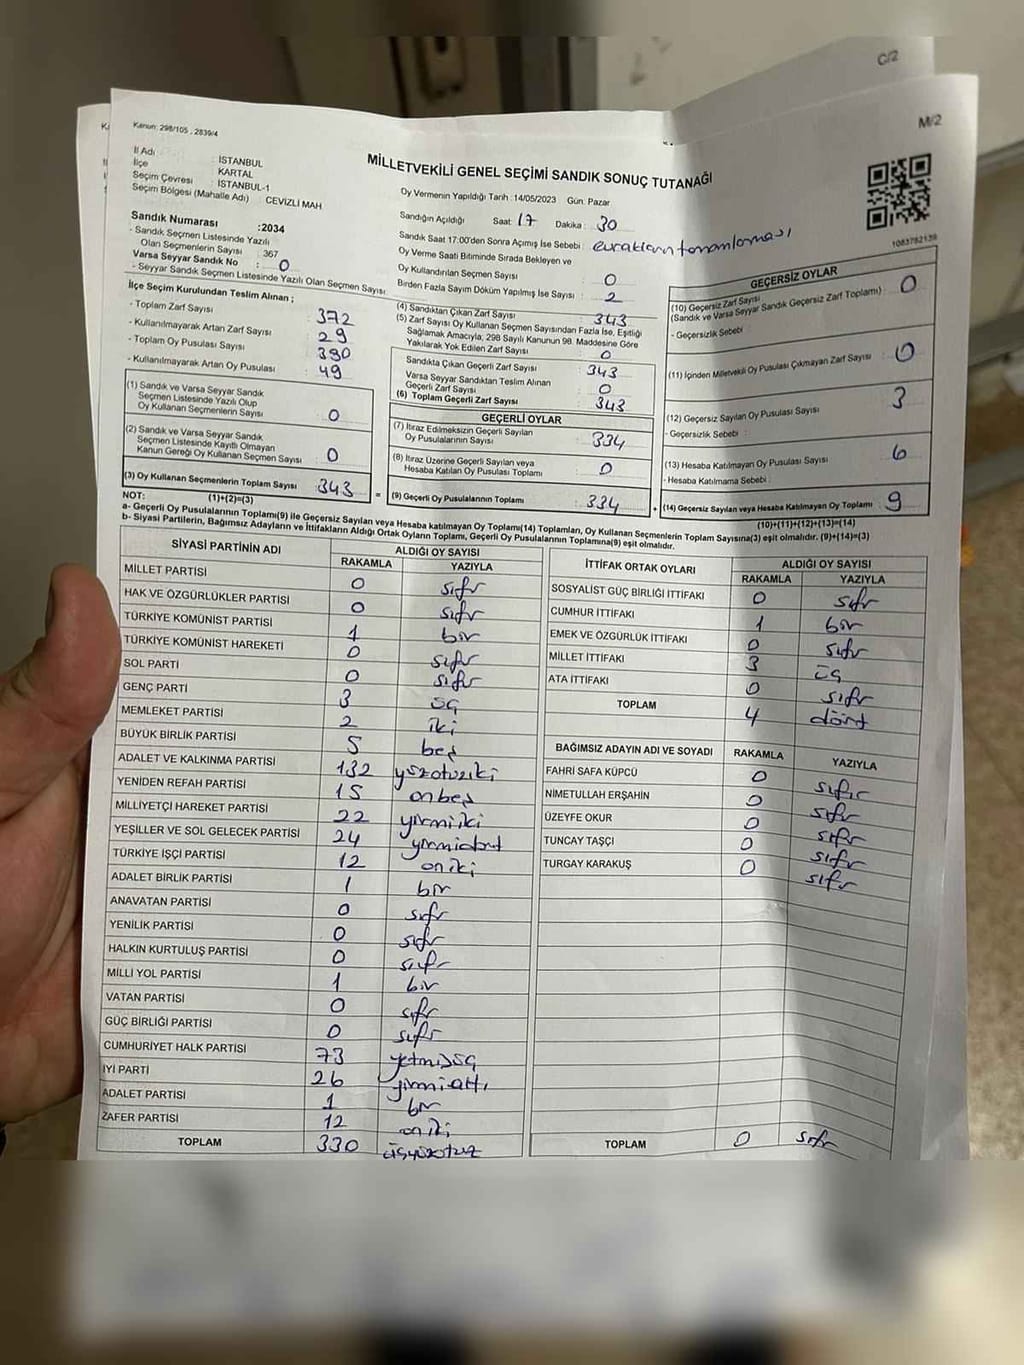 C/2
M/2
Kanun: 298/105 , 2839/4
İl Adı : İSTANBUL
İlçe : KARTAL
Seçim Çevresi : İSTANBUL-1
Seçim Bölgesi (Mahalle Adı) : CEVİZLİ MAH
MİLLETVEKİLİ GENEL SEÇİMİ SANDIK SONUÇ TUTANAĞI
Oy Vermenin Yapıldığı Tarih :14/05/2023 Gün: Pazar
Sandığın Açıldığı Saat: 17 Dakika : 30
Sandık Saat 17:00'den Sonra Açımış İse Sebebi : evrakların tamamlaması
Oy Verme Saati Bitiminde Sırada Bekleyen ve
Oy Kullandırılan Seçmen Sayısı : 0
Birden Fazla Sayım Döküm Yapılmış İse Sayısı : 2
1083782139
Sandık Numarası :2034
- Sandık Seçmen Listesinde Yazılı
Olan Seçmenlerin Sayısı : 367
Varsa Seyyar Sandık No : 0
- Seyyar Sandık Seçmen Listesinde Yazılı Olan Seçmen Sayısı
İlçe Seçim Kurulundan Teslim Alınan ;
- Toplam Zarf Sayısı : 372
- Kullanılmayarak Artan Zarf Sayısı : 29
- Toplam Oy Pusulası Sayısı : 390
- Kullanılmayarak Artan Oy Pusulası : 49
(1) Sandık ve Varsa Seyyar Sandık
Seçmen Listesinde Yazılı Olup
Oy Kullanan Seçmenlerin Sayısı : 0
(2) Sandık ve Varsa Seyyar Sandık
Seçmen Listesinde Kayıtlı Olmayan
Kanun Gereği Oy Kullanan Seçmen Sayısı : 0
(3) Oy Kullanan Seçmenlerin Toplam Sayısı : 343 =
(1)+(2)=(3)
(4) Sandıktan Çıkan Zarf Sayısı : 343
(5) Zarf Sayısı Oy Kullanan Seçmen Sayısından Fazla İse, Eşitliği
Sağlamak Amacıyla, 298 Sayılı Kanunun 98. Maddesine Göre
Yakılarak Yok Edilen Zarf Sayısı : 0
Sandıkta Çıkan Geçerli Zarf Sayısı : 343
Varsa Seyyar Sandıktan Teslim Alınan
Geçerli Zarf Sayısı : 0
(6) Toplam Geçerli Zarf Sayısı : 343
GEÇERLİ OYLAR
(7) İtiraz Edilmeksizin Geçerli Sayılan
Oy Pusulalarının Sayısı : 334
(8) İtiraz Üzerine Geçerli Sayılan veya
Hesaba Katılan Oy Pusulası Toplamı : 0
(9) Geçerli Oy Pusulalarının Toplamı : 334 +
GEÇERSİZ OYLAR
(10) Geçersiz Zarf Sayısı
(Sandık ve Varsa Seyyar Sandık Geçersiz Zarf Toplamı) : 0
- Geçersizlik Sebebi :
(11) İçinden Milletvekili Oy Pusulası Çıkmayan Zarf Sayısı : 0
(12) Geçersiz Sayılan Oy Pusulası Sayısı : 3
- Geçersizlik Sebebi :
(13) Hesaba Katılmayan Oy Pusulası Sayısı : 6
- Hesaba Katılmama Sebebi :
(14) Geçersiz Sayılan veya Hesaba Katılmayan Oy Toplamı : 9
(10)+(11)+(12)+(13)=(14)
NOT:
a- Geçerli Oy Pusulalarının Toplamı(9) ile Geçersiz Sayılan veya Hesaba katılmayan Oy Toplamı(14) Toplamları, Oy Kullanan Seçmenlerin Toplam Sayısına(3) eşit olmalıdır. (9)+(14)=(3)
b- Siyasi Partilerin, Bağımsız Adayların ve İttifakların Aldığı Ortak Oyların Toplamı, Geçerli Oy Pusulalarının Toplamına(9) eşit olmalıdır.
SİYASİ PARTİNİN ADI ALDIĞI OY SAYISI
RAKAMLA YAZIYLA
MİLLET PARTİSİ 0 sıfır
HAK VE ÖZGÜRLÜKLER PARTİSİ 0 sıfır
TÜRKİYE KOMÜNİST PARTİSİ 1 bir
TÜRKİYE KOMÜNİST HAREKETİ 0 sıfır
SOL PARTİ 0 sıfır
GENÇ PARTİ 3 üç
MEMLEKET PARTİSİ 2 iki
BÜYÜK BİRLİK PARTİSİ 5 beş
ADALET VE KALKINMA PARTİSİ 132 yüzotuziki
YENİDEN REFAH PARTİSİ 15 onbeş
MİLLİYETÇİ HAREKET PARTİSİ 22 yirmiiki
YEŞİLLER VE SOL GELECEK PARTİSİ 24 yirmidört
TÜRKİYE İŞÇİ PARTİSİ 12 oniki
ADALET BİRLİK PARTİSİ 1 bir
ANAVATAN PARTİSİ 0 sıfır
YENİLİK PARTİSİ 0 sıfır
HALKIN KURTULUŞ PARTİSİ 0 sıfır
MİLLİ YOL PARTİSİ 1 bir
VATAN PARTİSİ 0 sıfır
GÜÇ BİRLİĞİ PARTİSİ 0 sıfır
CUMHURİYET HALK PARTİSİ 73 yetmişüç
İYİ PARTİ 26 yirmialtı
ADALET PARTİSİ 1 bir
ZAFER PARTİSİ 12 oniki
TOPLAM 330 üçyüzotuz
İTTİFAK ORTAK OYLARI ALDIĞI OY SAYISI
RAKAMLA YAZIYLA
SOSYALİST GÜÇ BİRLİĞİ İTTİFAKI 0 sıfır
CUMHUR İTTİFAKI 1 bir
EMEK VE ÖZGÜRLÜK İTTİFAKI 0 sıfır
MİLLET İTTİFAKI 3 üç
ATA İTTİFAKI 0 sıfır
TOPLAM 4 dört
BAĞIMSIZ ADAYIN ADI VE SOYADI RAKAMLA YAZIYLA
FAHRİ SAFA KÜPCÜ 0 sıfır
NİMETULLAH ERŞAHİN 0 sıfır
ÜZEYFE OKUR 0 sıfır
TUNCAY TAŞÇI 0 sıfır
TURGAY KARAKUŞ 0 sıfır
TOPLAM 0 sıfır